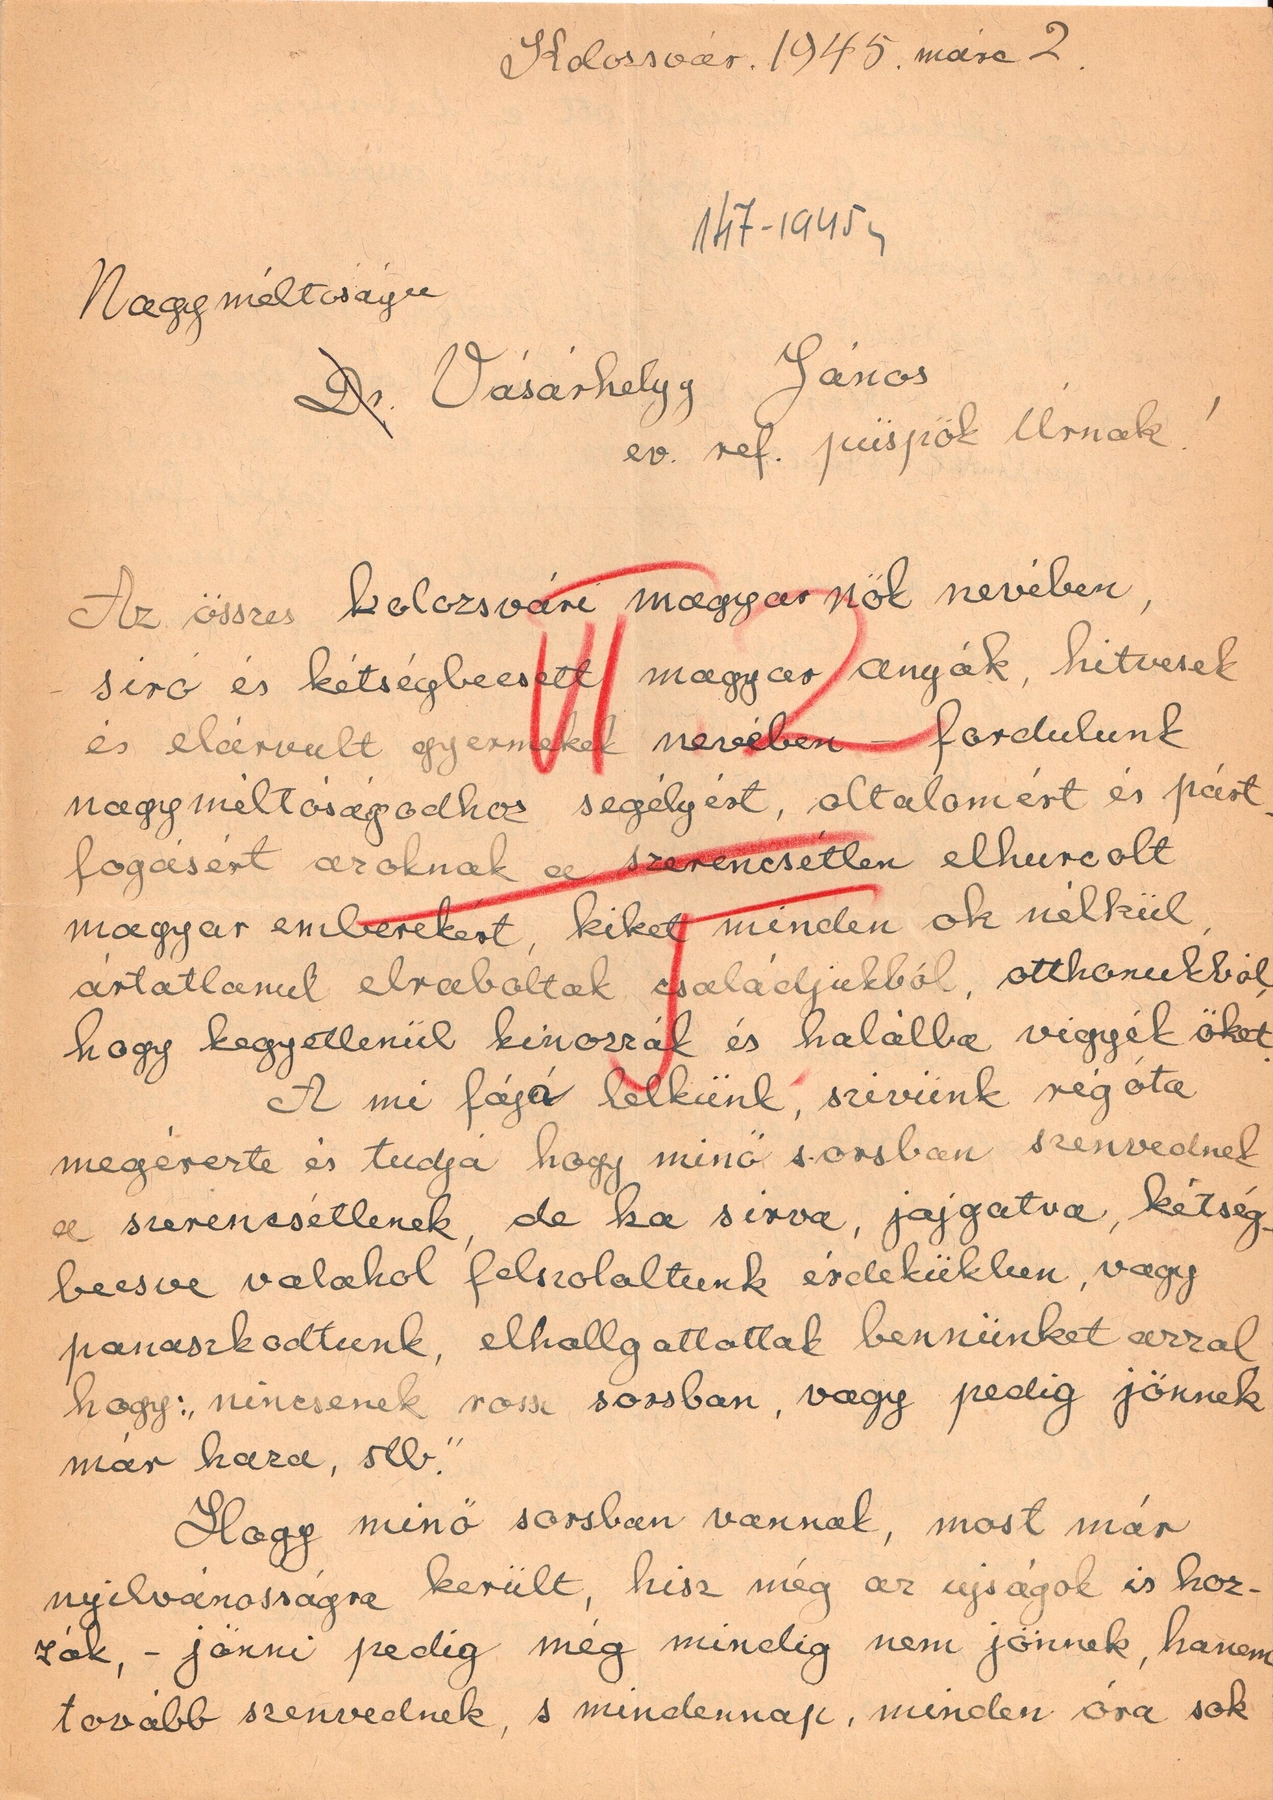 Kolossvár. 1945. márc 2.
147-1945
Nagyméltóságu
Dr. Vásárhelyy János
ev. ref. püspök Úrnak!
Az összes kolozsvári magyar nők nevében,
- siró és kétségbeesett magyar anyák, hitvesek
és elárvult gyermekek nevében – fordulunk
nagyméltóságodhoz segélyért, oltalomért és párt-
fogásért azoknak a szerencsétlen elhurcolt
magyar emberekért, kiket minden ok nélkül,
ártatlanul elraboltak családjukból, otthonukból,
hogy kegyetlenül kinozzák és halálba vigyék őket.
A mi fájó lelkünk, szivünk régóta
megérezte és tudja hogy minő sorsban szenvednek
a szerencsétlenek, de ha sirva, jajgatva, kétség-
beesve valahol felszolaltunk érdekükben, vagy
panaszkodtunk, elhallgattottak bennünket azzal
hogy: „nincsenek rossz sorsban, vagy pedig jönnek
már haza, stb."
Hogy minő sorsban vannak, most már
nyilvánosságra került, hisz még az ujságok is hoz-
zák, - jönni pedig még mindig nem jönnek, hanem
tovább szenvednek, s mindennap, minden óra sok